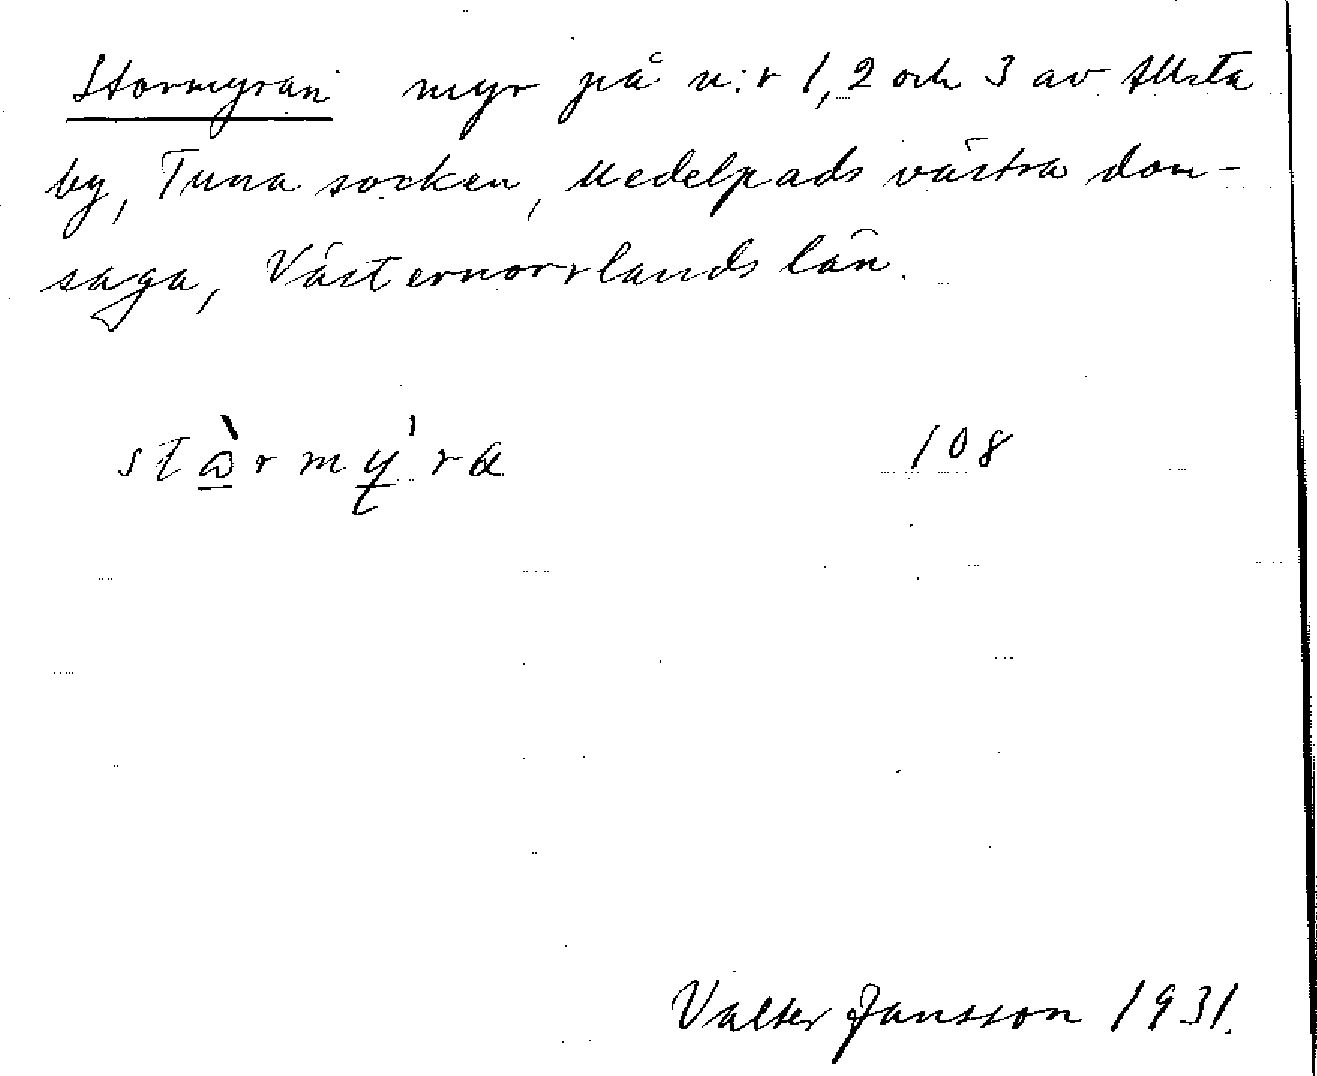 Stormyran myr på n:r 1, 2 och 3 av Allsta
by, Tuna socken, Medelpads västra dom-
saga, Västernorrlands län.
stòrmy̠'ra 108
Valter Jansson 1931.